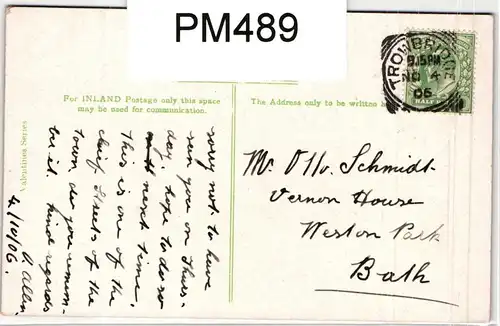 PM489
TROWBRIDGE
9.15PM
NO 4
06
HALF
For INLAND Postage only this space
may be used for communication.
The Address only to be written
Valentines Series
sorry not to have
seen you on Thurs-
day. hope to do so
next time.
This is one of the
chief streets of the
town. do you remem-
ber it. kind regards
Allen
4/10/06.
Mr Otto Schmidt.
Vernon House
Weston Park
Bath